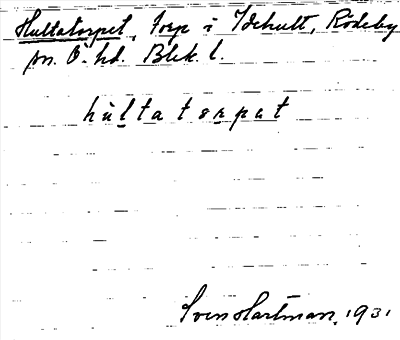 Hultatorpet, torp i Idehult, Rödeby
sn. Ö. hd. Blek. l.
hultatorpat
Sven Hartman, 1931